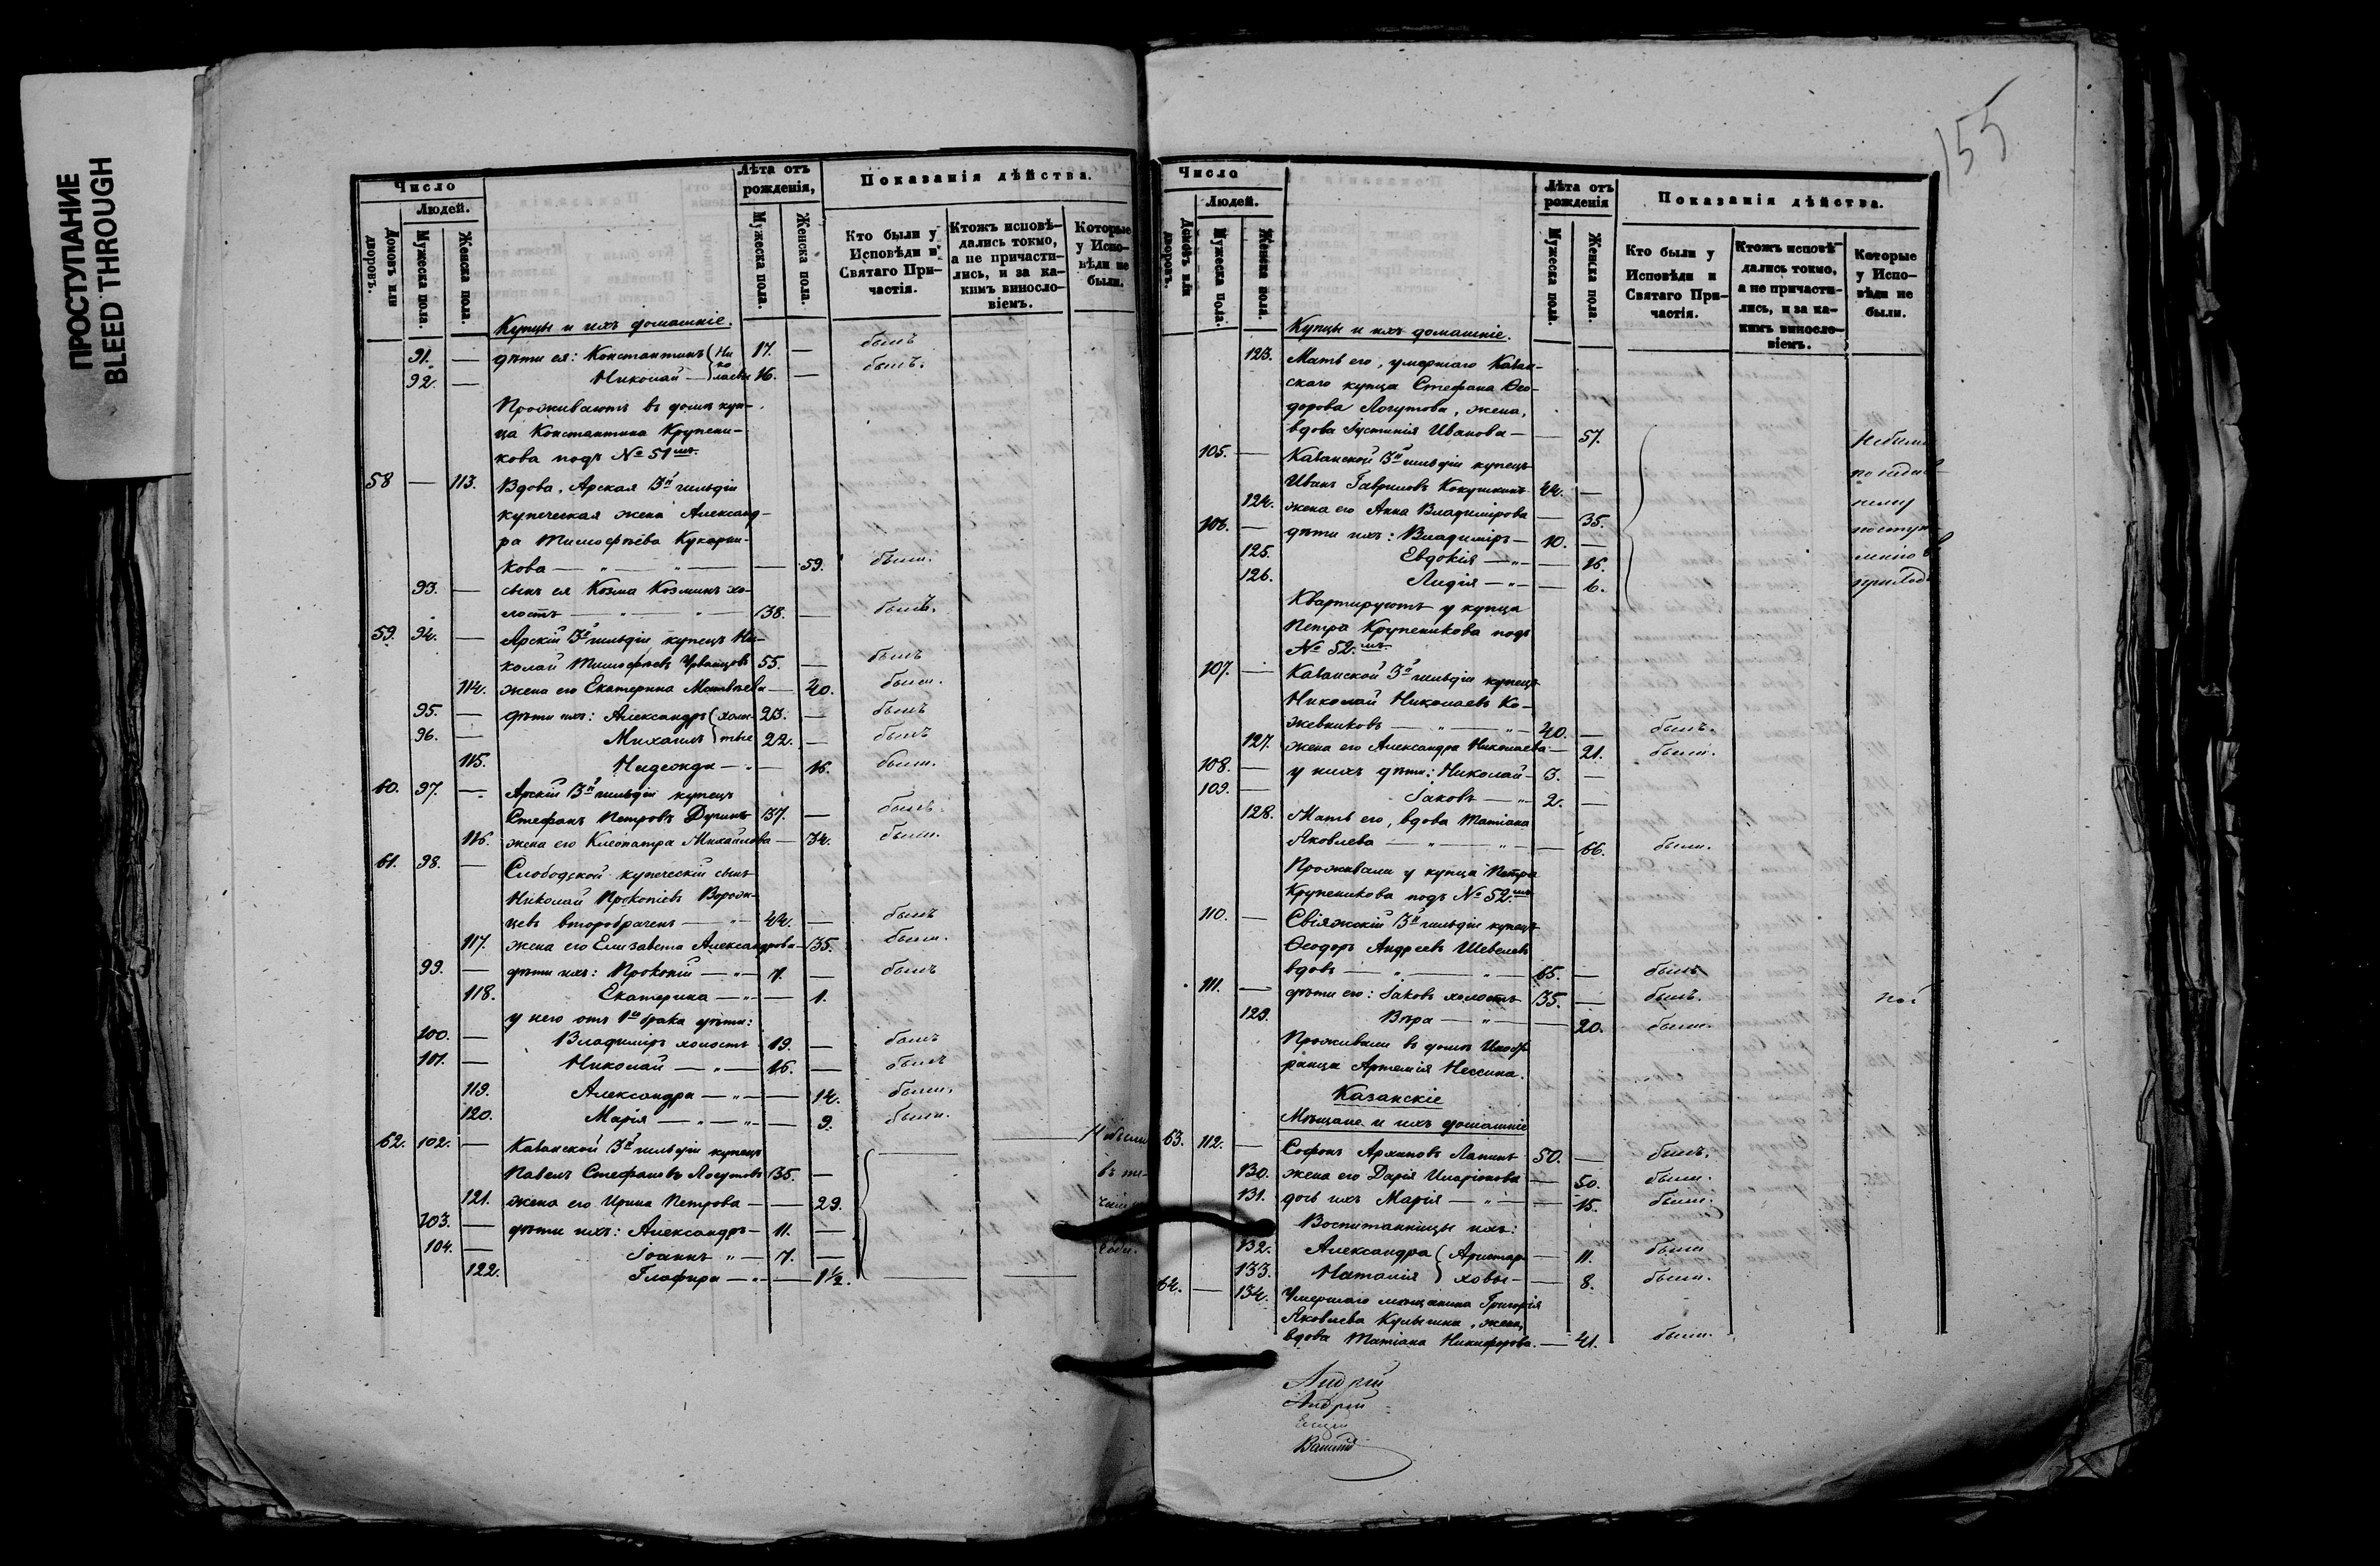 ПРОСТУПАНИЕ
BLEED THROUGH
Число
Людей.
Домовъ или дворовъ.
Мужеска пола.
Женска пола.
Лѣта отъ рожденія,
Мужеска пола.
Женска пола.
Показанія дѣйства.
Кто были у Исповѣди и Святаго Причастія.
Ктожъ исповѣдались токмо, а не причастились, и за какимъ винословіемъ.
Которые у Исповѣди не были.
Купцы и ихъ домашніе.
91. — дѣти ея: Константинъ (Ни 17. — былъ
92. — Николай — колаевы 16. — былъ.
Проживаютъ въ домѣ куп-
ца Константина Крупени-
кова подъ № 51мъ.
58 — 113. Вдова, Арская 3й гильдіи
купеческая жена Александ-
ра Тимофеѣва Кукарни-
кова — " — " — — 59. была.
93. — сынъ ея Козма Козминъ хо-
лостъ — " — " — 38. — былъ.
59. 94. — Арскій 3й гильдіи купецъ Ни-
колай Тимофѣевъ Урванцовъ 55. — былъ
114. жена его Екатерина Матвѣева — 40. была.
95. — дѣти ихъ: Александръ (холос- 23. — былъ
96. — Михаилъ тые 22. — былъ
115. Надежда — " — 16. была.
60. 97. — Арскій 3й гильдіи купецъ
Стефанъ Петровъ 37. — былъ.
116. жена его Клеопатра Михайлова — 34. была.
61. 98. — Слободской купеческій сынъ
Николай Прокопіевъ Ворож-
цевъ второбраченъ — " — 44. — былъ
117. жена его Елизавета Александрова — 35. была.
99. — дѣти ихъ: Прокопій — " — 7. — былъ
118. Екатерина — " — — 1.
у него отъ 1го брака дѣти:
100. — Владиміръ холостъ 19. — былъ
101. — Николай — " — 16. — былъ
119. Александра — " — — 14. была.
120. Марія — " — " — — 9. была.
62. 102. — Казанской 3й гильдіи купецъ
Павелъ Стефановъ Логутовъ 35. —
121. жена его Ирина Петрова — — 29.
103. — дѣти ихъ: Александръ — 11. —
104. — Іоаннъ " — 7. —
122. Глафира — " — — 1½.
155
Число
Людей.
Домовъ или дворовъ.
Мужеска пола.
Женска пола.
Лѣта отъ рожденія
Мужеска пола.
Женска пола.
Показанія дѣйства.
Кто были у Исповѣди и Святаго Причастія.
Ктожъ исповѣдались токмо, а не причастились, и за какимъ винословіемъ.
Которые у Исповѣди не были.
Купцы и ихъ домашніе.
123. Мать его, умершаго Казан-
скаго купца Стефана Ѳео-
дорова Логутова, жена,
вдова Іустинія Иванова — — 57. Небыли
105. — Казанской 3й гильдіи купецъ
Иванъ Гавриловъ Кокушкинъ 44. —
124. жена его Анна Владимірова — 35.
106. — дѣти ихъ: Владиміръ — 10. —
125. Евдокія — " — — 16.
126. Лидія — " — — 6.
Квартируютъ у купца
Петра Крупеникова подъ
№ 52.мъ
107. — Казанской 3й гильдіи купецъ
Николай Николаевъ Ко-
жевниковъ — " — " — 40. — былъ.
127. жена его Александра Николаева — 21. была.
108. — у нихъ дѣти: Николай — 3. —
109. — Іаковъ — " — 2. —
128. Мать его, вдова Татіана
Яковлева — " — " — — 66. была.
Проживали у купца Петра
Крупеникова подъ № 52.мъ
110. — Свіяжскій 3й гильдіи купецъ
Ѳеодоръ Андреевъ Шевелевъ
вдовъ — " — " — 65. — былъ
111. — дѣти его: Іаковъ холостъ 35. — былъ.
129. Вѣра — " — — 20. была.
Проживали въ домѣ Иност-
ранца Артемія Нессина.
Казанскіе
Мѣщане и ихъ домашніе
63. 112. — Софонъ Архиповъ Лапинъ 50. — былъ.
130. жена его Дарія Иларіонова — 50. была.
131. дочь ихъ Марія — " — — 15. была.
Воспитанницы ихъ:
132. Александра (Аристар — 11. была
133. Наталія ховы — — 8. была.
64. — 134. Умершаго мѣщанина Григорія
Яковлева Кулыгина, жена,
вдова Татіана Никифорова. — 41. была.